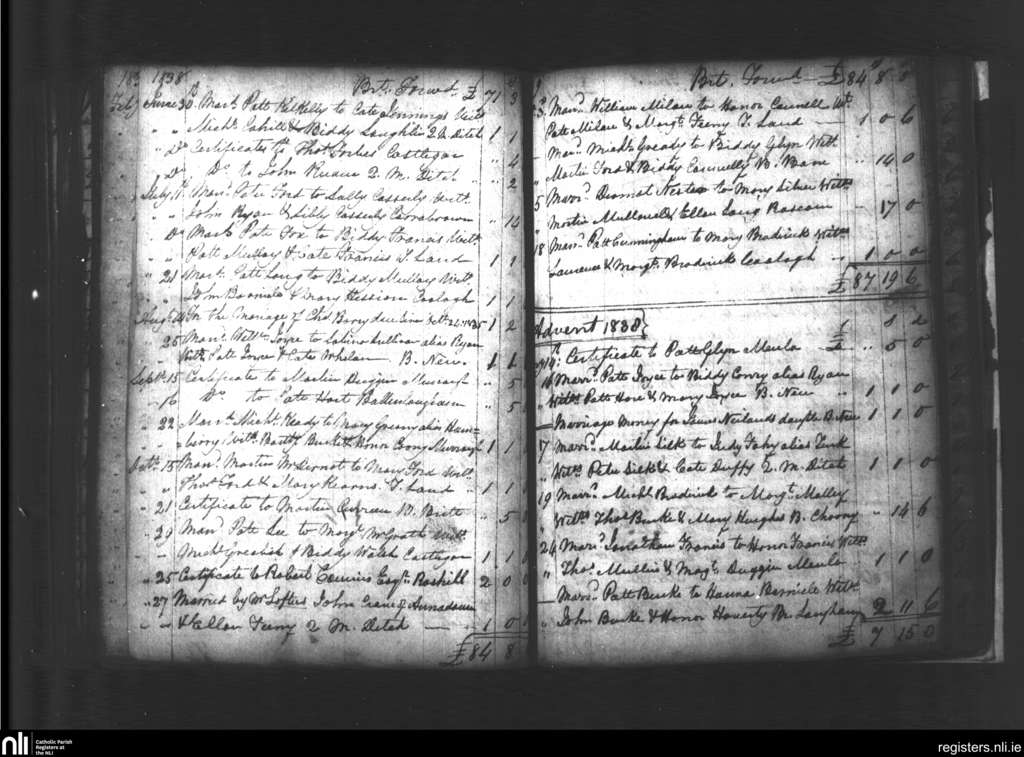 1838
Brt. Forwd. £ 71 3
June 30 Marr. Patt Kilkelly to Cate Jennings Witt
" " Michl. Cahill & Biddy Laughlin 2 M. Ditch 1 1
" Do Certificates to Thos. Forbes Castlegar " 4
" Do Do. to John Ruane 2. M. Ditch " 2
July Marr. Pate Ford to Sally Casserly Witt.
" " John Ryan & Sibby Casserly Carrabrown " 14
" Do Marr. Pate Fox to Biddy Francis Witt.
" " Patt Mullay & Cate Francis T. Land 1 1
" 24 Marr. Patt Long to Biddy Mullay Witt.
" " John Barnicle & Mary Hession Coolagh 1 1
Augt. In the Mariage of Chs. Barry due since 1 2
25 Marr. Willm. Joyce to Sullivan alias Ryan
Witts. Patt Joyce & Cate Whelan B. New. 1 1
Septr. 15 Certificate to Martin Duggin Murragh " 5
" 16 Do. to Pate Hart Ballinlaughaun " 5
" 22 Marr. Michl. Ready to Mary Greany alias
Witts. Bartly Burke & Honor Murragh 1 1
Octr. 15 Marr. Martin McDermot to Mary Ford Witts.
" " Thos. Ford & Mary Kearns T. Land 1 1
" 21 Certificate to Martin Curran " 5
" 29 Marr. Pate Lee to Margt. McGrath Witts.
" " Michl. Grealish & Biddy Walsh Castlegar 1 1
" 25 Certificate to Robert Commins Esqr. Roshill 2 0 0
" 27 Married by Mr. Loftus John Crane of Annadown
" " & Ellen Feeny 2 M. Ditch 1 0
£84 8
Brt. Forwd. £84 8
Marr. William Milan to Honor Witt.
Patt Milan & Margt. Feeny T. Land 1 0 6
Marr. Michl. Gready to Biddy Glyn Witt.
" Martin Ford & Biddy B. Bane " 14 0
5 Marr. Dermot to Mary Silver Witts.
" Martin & Ellen Long Roscam " 17 0
18 Marr. Patt Cunningham to Mary Bradrick Witts.
Laurence & Margt. Brodrick Coolagh 1 0 0
£87 19 6
Advent 1838
£ s d
Certificate to Patt Glyn Menlo £ " 5 0
Marr. Patt Joyce to Biddy Conry alias Ryan
" Witts. Patt Hare & Mary Joyce B. New 1 1 0
Marriage Money for James daughtr. B. New 1 1 0
17 Marr. Martin Silk to Judy Fahy alias Turk
" Witts. Peter Silk & Cate Duffy 2. M. Ditch 1 1 0
19 Marr. Michl. Bradrick to Margt. Malley
" Witts. Thos. Burke & Mary Hughes B. " 14 6
24 Marr. Jonathan Francis to Honor Francis Witts.
" Thos. Mullin & Magt. Duggin Menlo 1 1 0
Marr. Patt Burke to Hanna Barnicle Witts.
" John Burke & Honor Haverty M. Laughaun 2 11 6
£ 7 15 0
nli
Catholic Parish
Registers at
the NLI
registers.nli.ie